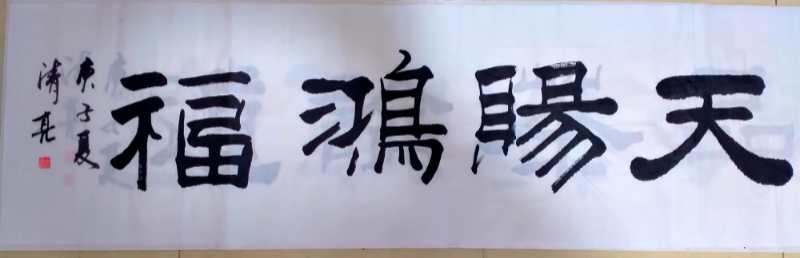 天賜鴻福
庚子夏
涛亮